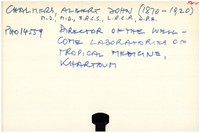 CHALMERS, ALBERT JOHN (1870-1920)
M.D., F.R.C.S., D.P.H.
PHO14559 DIRECTOR OF THE WELL-
COME LABORATORIES OF
TROPICAL MEDICINE,
KHARTOUM